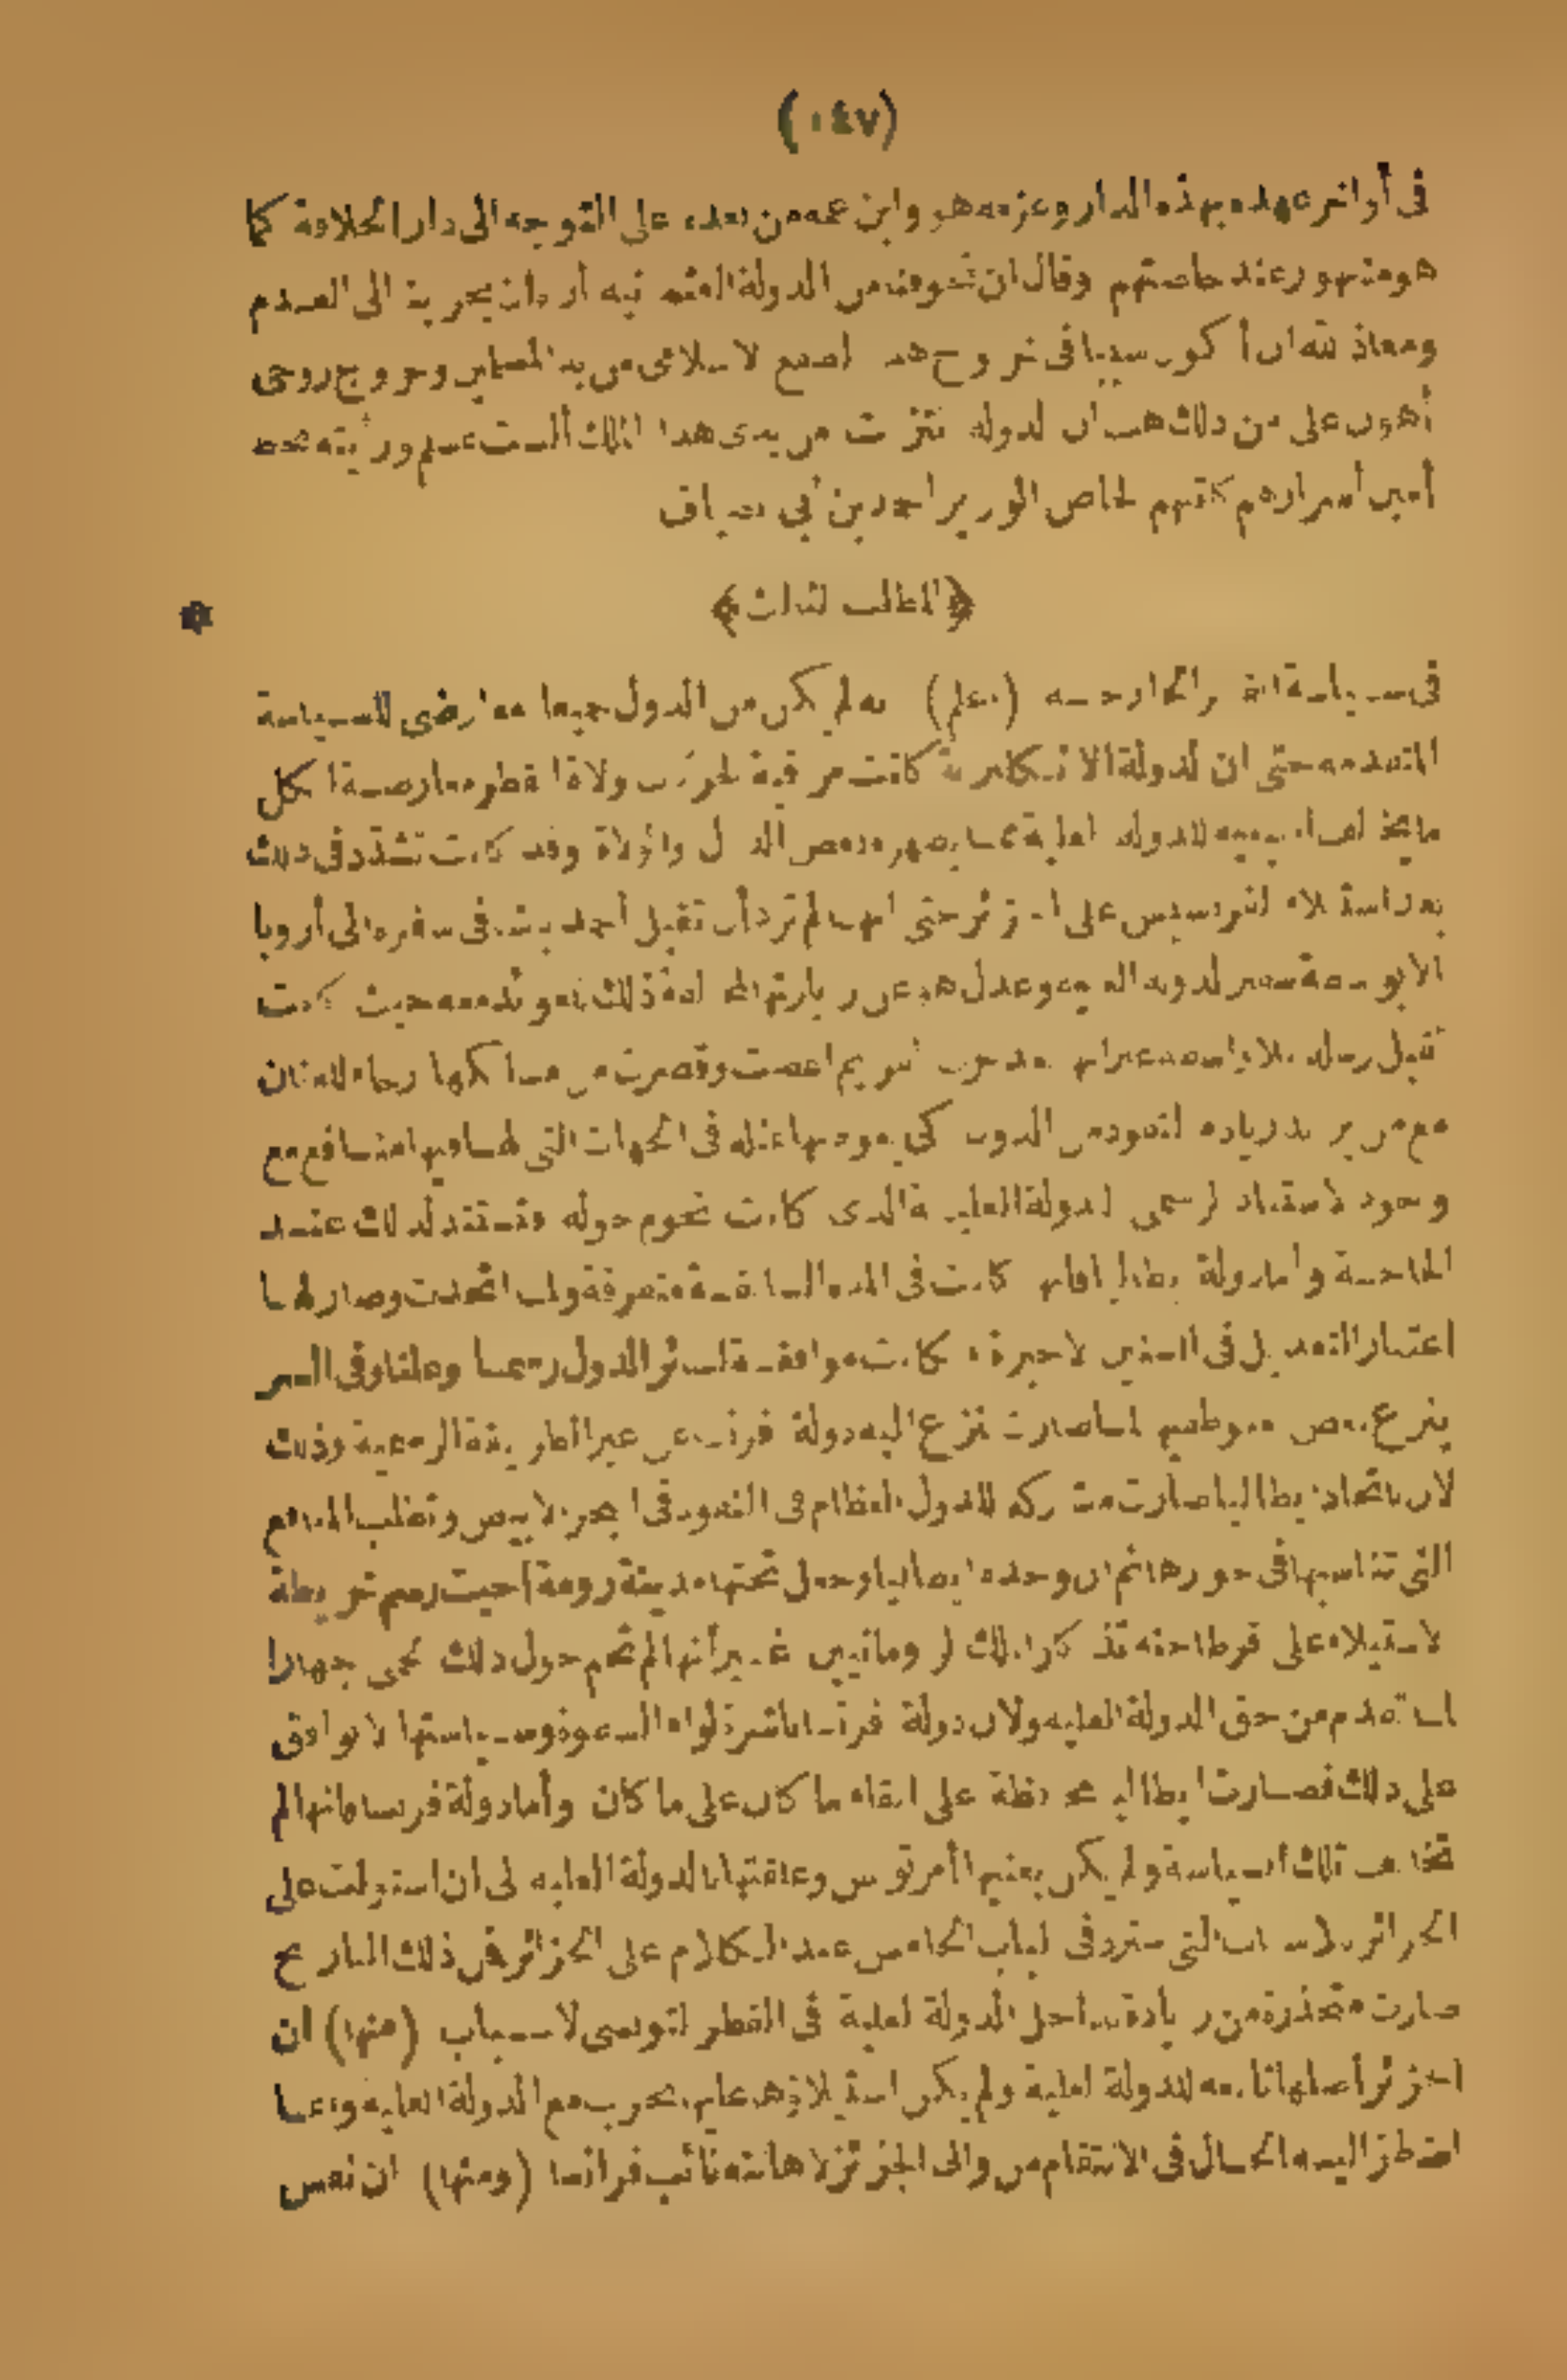 (١٤٧)
فى أواخر عهده بهذه الدار وعزمه هو وابن عمه من بعده على التوجه الى دار الخلافة كما
هو مشهور عند خاصتهم وقال ان تخوفنا من الدولة العثمانية أردان يجرينا الى العدم
ومعاذ الله ان أكون سببا فى خروج هذا الصقع الاسلامى من يد المسلمين وخروج روحى
أهون على من ذلك هب أن الدولة نزعت من يدى هذا الملك ألست بمسلم ورأيته بخط
أمين أسرارهم كاتبهم الخاص الوزير أحمد بن أبى ضياف
﴿المطلب الثالث﴾
فى سياسة القطر الخارجية (اعلم) انه لم يكن من الدول جميعا معارض للسياسة
المتقدمة حتى ان الدولة الانكليزية كانت مراقبة لجزئيات ولاة القطر معارضة لكل
ما يخالف للدولة العلية مما يظهره بعض الدول والولاة وقد كانت تشدد فى ذلك
بعد استيلاء الفرنسيس على الجزائر حتى انها لم ترد أن تقبل أحمد باشا فى سفره الى أوروبا
الا بواسطة سفير الدولة العلية وعدل هو عن زيارتها لذلك حيث كانت
تقبل رسله بلا واسطة غير انها بعد حرب القريم اغضت وقصرت من مسالكها
مع من يريد زيادة النفوذ من الدول كى يعوضها عنه فى الجهات التى لها فيها منافع مع
وجود الاستناد الرسمى للدولة العلية الذى كانت تحوم حوله فتستند لذلك عند
الحاجة وأما دولة ايطاليا فانها كانت فى المدة السابقة متفرقة ولما اتحدت وصار لها
اعتبار الدول فى السنين الاخيرة كانت موافقة لسائر الدول رسميا وعلنا وفى السر
ينزع بعض متوظفيها لما صارت تنزع اليه دولة فرنسا من غير الطريقة الرسمية وذلك
لان باتحاد ايطاليا صارت مشاركة للدول العظام فى النفوذ فى البحر الابيض وتطلب المنافع
التى تناسبها فى جوارها ثم ان وحدة ايطاليا وجعل تختها مدينة رومة أحيت رسم خريطة
الاستيلاء على قرطاجنه تذكرا لملك الرومانيين غير أنها لم تحم حول ذلك الحمى جهارا
لما تقدم من حق الدولة العلية ولان دولة فرنسا ناشرة لواء النفوذ وسياستها لا توافق
على ذلك فصارت ايطاليا محافظة على ابقاء ما كان على ما كان وأما دولة فرنسا فانها لم
تخالف تلك السياسة ولم يكن يعنيها أمر تونس وعلاقتها بالدولة العلية الى ان استولت على
الجزائر بالاسباب التى سترد فى الباب الخامس عند الكلام على الجزائر فمن ذلك التاريخ
صارت متحذرة من زيادة تداخل الدولة العلية فى القطر التونسى لاسباب (منها) ان
الجزائر أصلها تابعة للدولة العلية ولم يكن استيلاؤها عليها بحرب مع الدولة العلية وانما
اضطر اليه الحال فى الانتقام من والى الجزائر لاهانته نائب فرانسا (ومنها) ان نفس